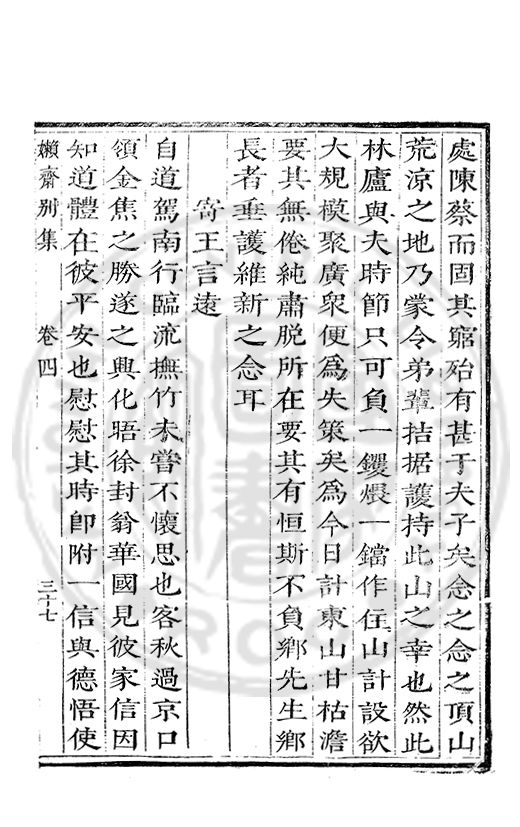 處陳蔡而固其窮殆有甚于夫子矣念之念之頂山
荒涼之地乃蒙令弟輩拮据護持此山之幸也然此
林廬與夫時節只可負一钁煨一鐺作住山計設欲
大規模聚廣衆便爲失策矣爲今日計東山甘枯澹
要其無倦純肅脱所在要其有恒斯不負鄉先生鄉
長者垂護維新之念耳
寄王言遠
自道駕南行臨流撫竹未嘗不懷思也客秋過京口
領金焦之勝遂之興化晤徐封翁華國見彼家信因
知道體在彼平安也慰慰其時卽附一信與德悟使
嬾齋别集
卷四
三十七